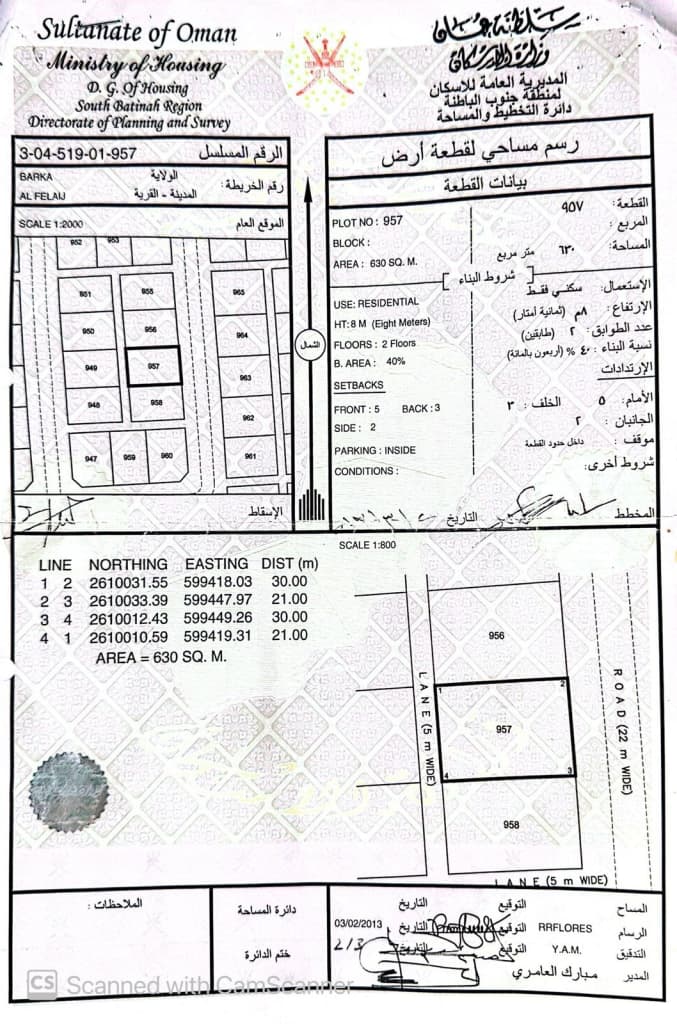 Sultanate of Oman
Ministry of Housing
D. G. Of Housing
South Batinah Region
Directorate of Planning and Survey
سلطنة عمان
وزارة الإسكان
المديرية العامة للاسكان
لمنطقة جنوب الباطنة
دائرة التخطيط والمساحة
3-04-519-01-957 الرقم المسلسل
BARKA الولاية
رقم الخريطة :
AL FELAIJ المدينة - القرية
SCALE 1:2000 الموقع العام
952 953
951 955 965
950 956 964
949 957 963
948 958 962
947 959 960 961
الإسقاط
الشمال
رسم مساحي لقطعة أرض
بيانات القطعة
PLOT NO : 957 القطعة: ٩٥٧
BLOCK : المربع :
AREA : 630 SQ. M. المساحة: ٦٣٠ متر مربع
شروط البناء
USE: RESIDENTIAL الإستعمال: سكني فقط
HT: 8 M (Eight Meters) الإرتفاع: ٨م (ثمانية أمتار)
FLOORS : 2 Floors عدد الطوابق: ٢ (طابقين)
B. AREA : 40% نسبة البناء : ٤٠ % (أربعون بالمائة)
SETBACKS الإرتدادات
FRONT : 5 BACK : 3 الأمام: ٥ الخلف: ٣
SIDE : 2 الجانبان : ٢
PARKING : INSIDE موقف : داخل حدود القطعة
CONDITIONS : شروط أخرى:
المخطط التاريخ
SCALE 1:800
LINE NORTHING EASTING DIST (m)
1 2 2610031.55 599418.03 30.00
2 3 2610033.39 599447.97 21.00
3 4 2610012.43 599449.26 30.00
4 1 2610010.59 599419.31 21.00
AREA = 630 SQ. M.
956
1 2
957
4 3
958
LANE (5 m WIDE)
ROAD (22 m WIDE)
LANE (5 m WIDE)
الملاحظات :
دائرة المساحة
ختم الدائرة
المساح التوقيع التاريخ
الرسام RRFLORES التوقيع التاريخ 03/02/2013
التدقيق Y.A.M. التوقيع التاريخ
المدير مبارك العامري
CS Scanned with CamScanner